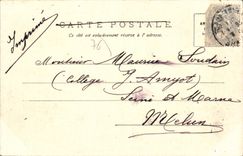 CARTE POSTALE
Ce côté est exclusivement réservé à l'adresse.
Imprimé
76
Monsieur Maurice Soudain
(College J. Amyot)
Seine et Marne
Melun